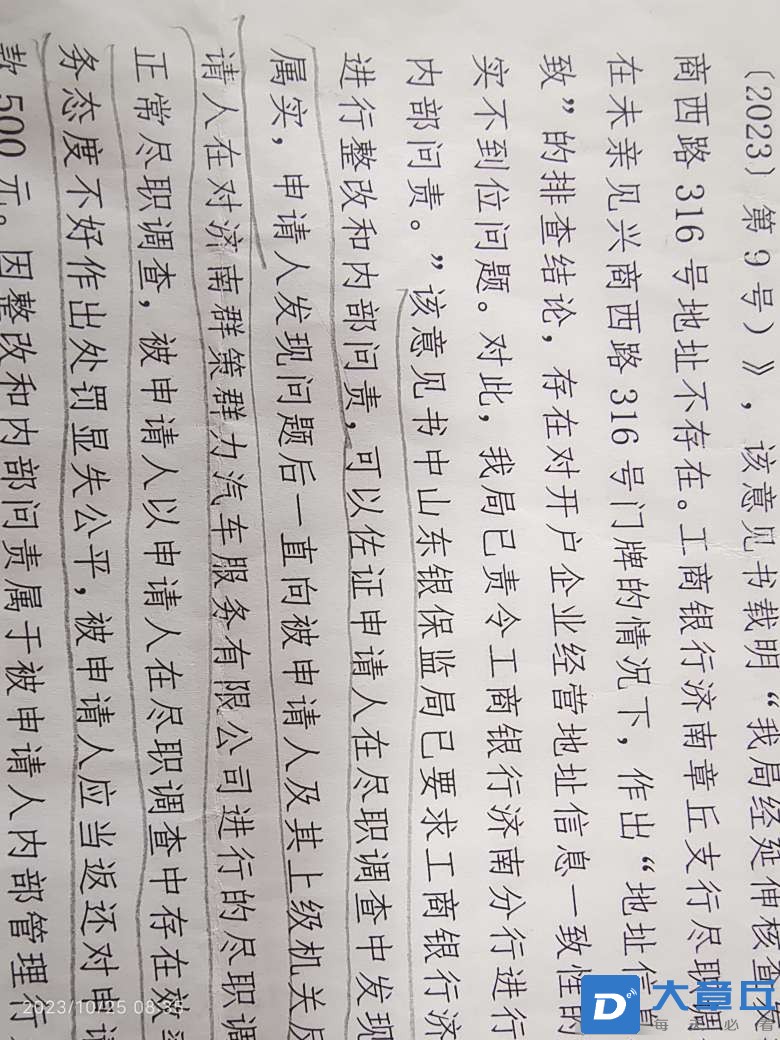 〔2023〕第9号）》，该意见书载明“我局经延伸核查发
商西路316号地址不存在。工商银行济南章丘支行尽职调
在未亲见兴商西路316号门牌的情况下，作出“地址信息
致”的排查结论，存在对开户企业经营地址信息一致性的
实不到位问题。对此，我局已责令工商银行济南分行进行
内部问责。”该意见书中山东银保监局已要求工商银行济
进行整改和内部问责，可以佐证申请人在尽职调查中发现
属实，申请人发现问题后一直向被申请人及其上级机关反
请人在对济南群策群力汽车服务有限公司进行的尽职调
正常尽职调查，被申请人以申请人在尽职调查中存在效率
务态度不好作出处罚显失公平，被申请人应当返还对申请
款500元。因整改和内部问责属于被申请人内部管理行
2023/10/25 08:35
D
大章口
每天必看